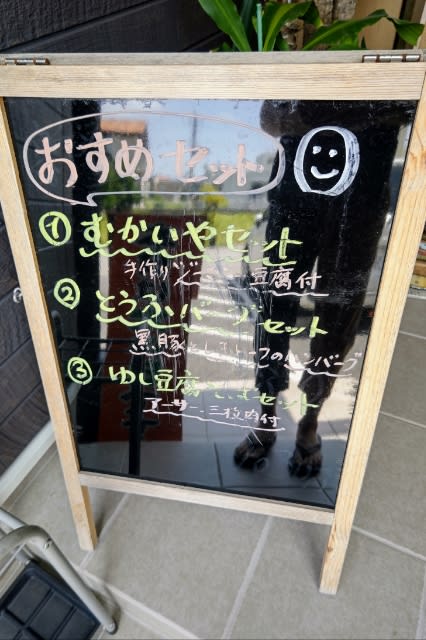 おすすめセット
① むかいやセット
手作りジーマーミ豆腐付
② とうふバーグセット
黒豚 のハンバーグ
③ ゆし豆腐 セット
アーサ、三枚肉付